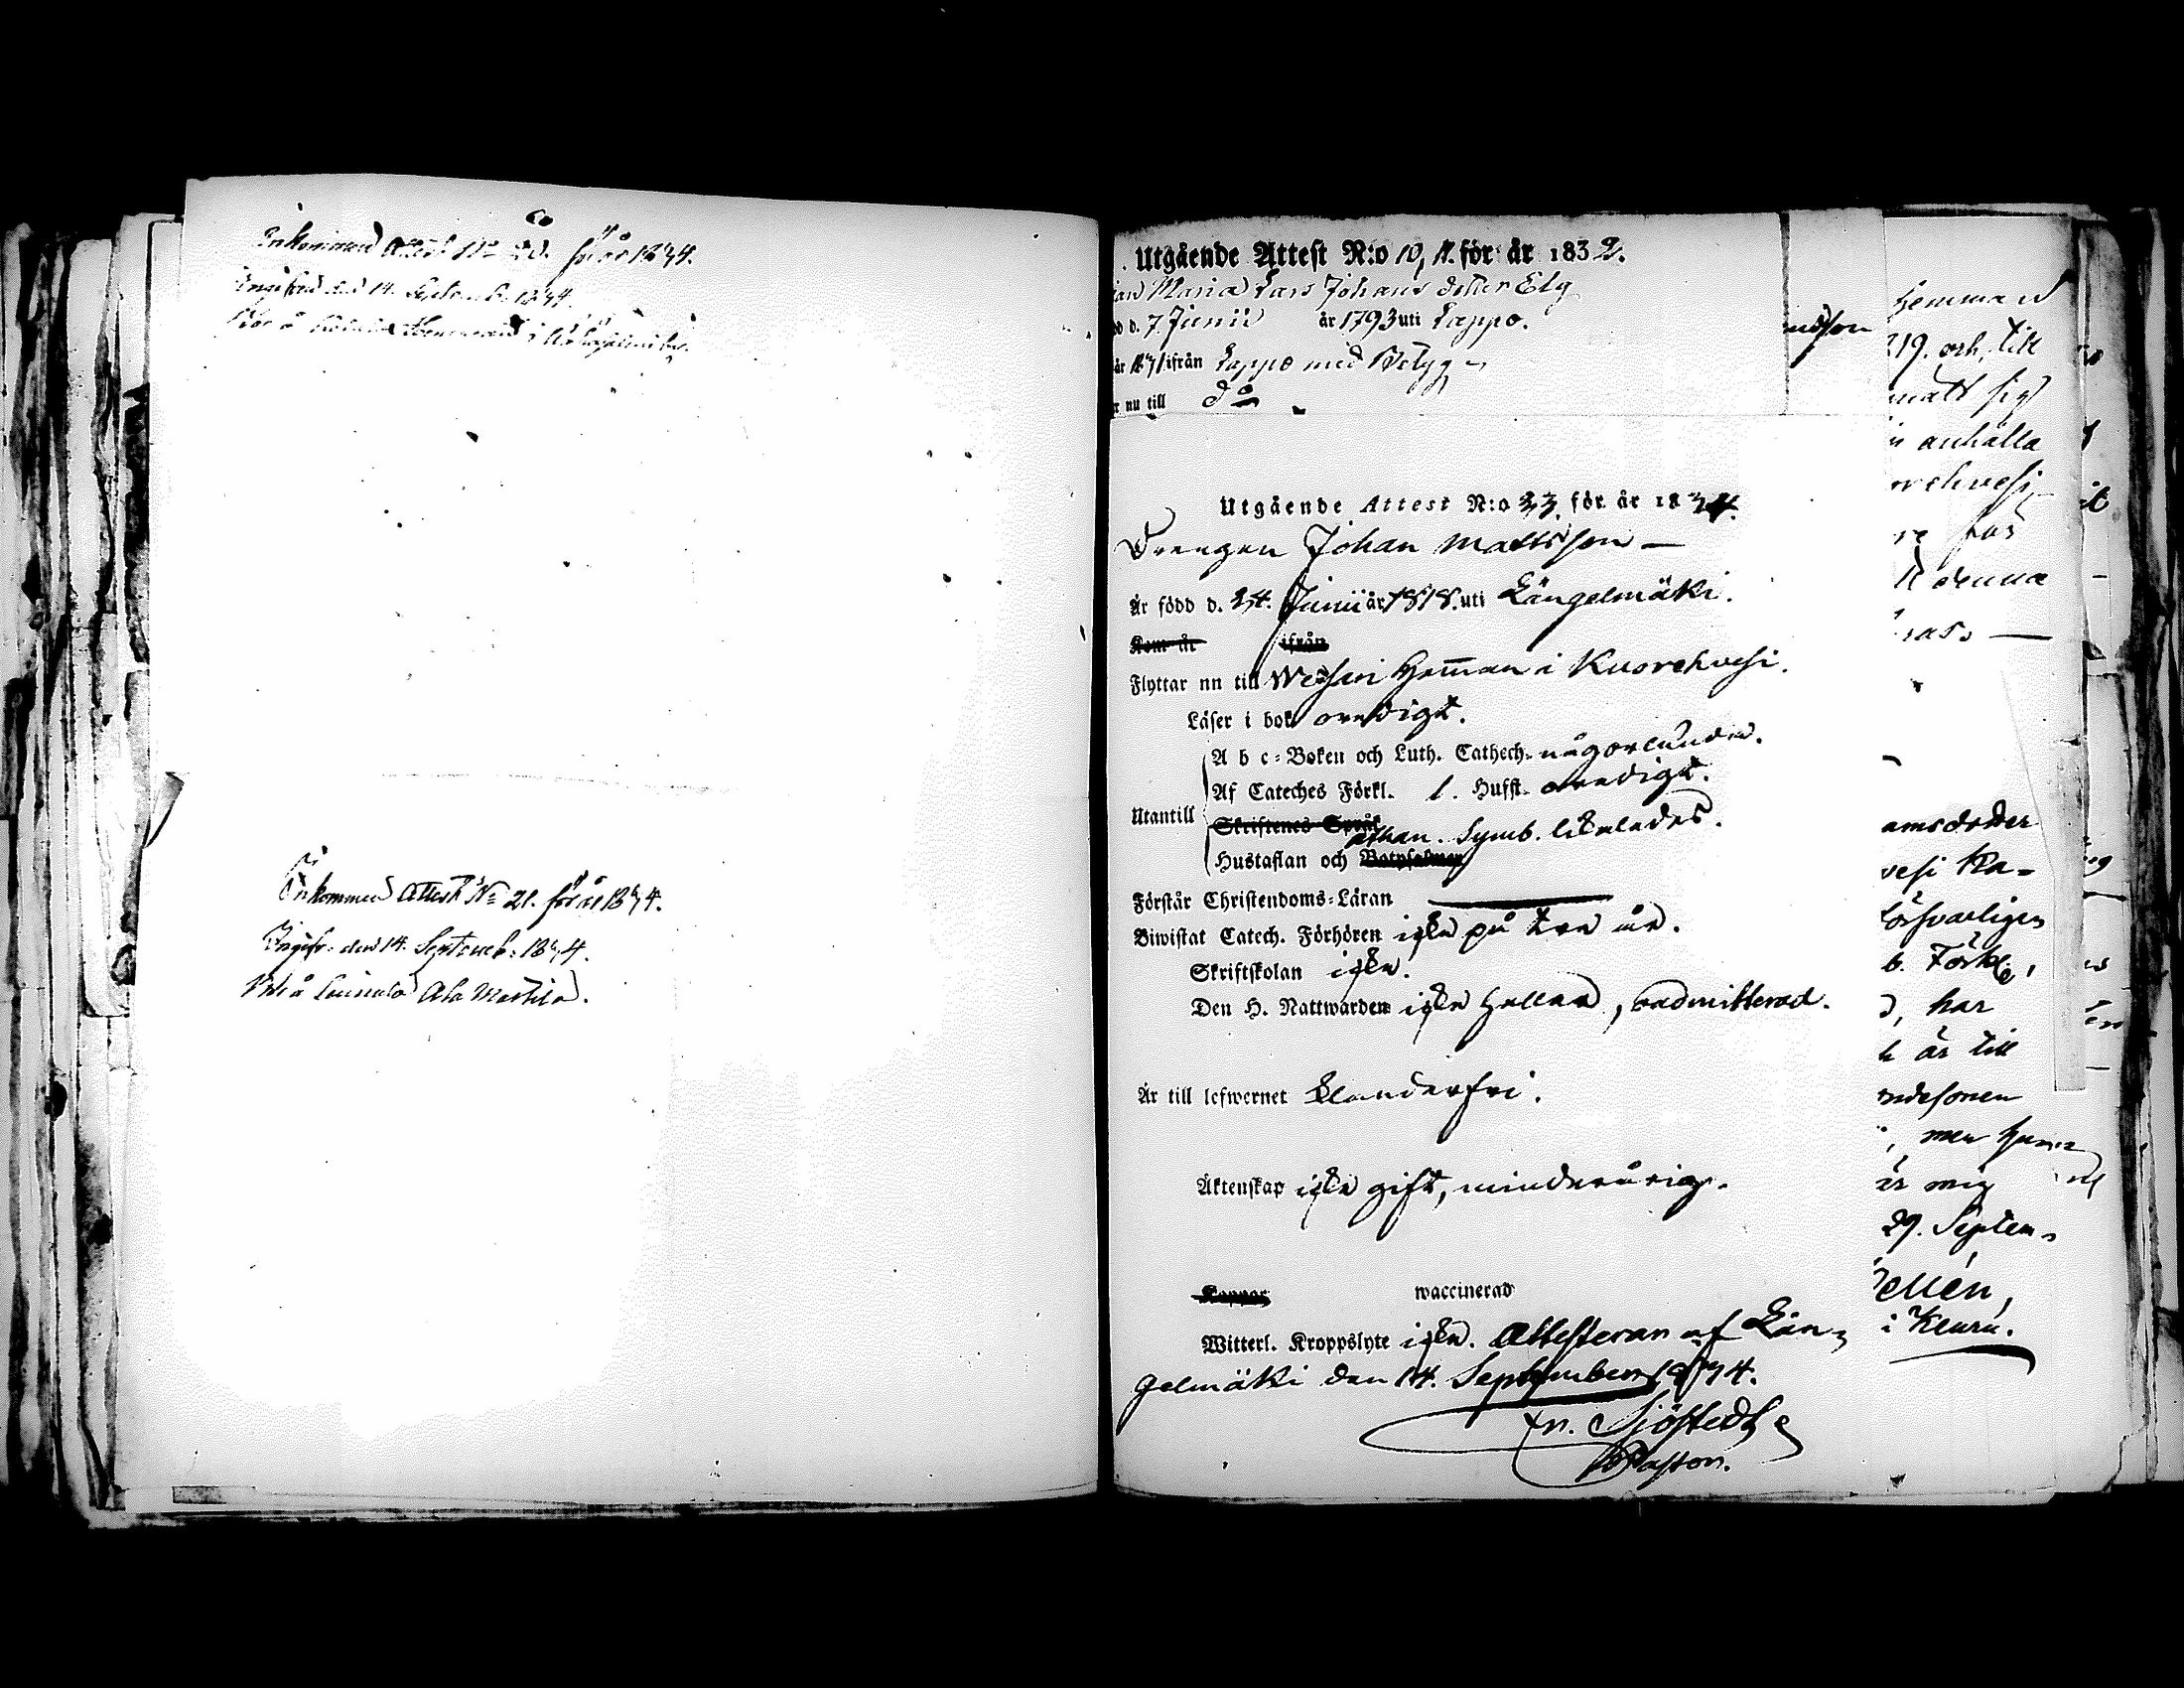 Inkommen Attest No 20. för år 1834.
Ingifven den 14. Septemb. 1834.
Bor å Hemman i
Inkommen Attest No 21. för år 1834.
Ingifv: den 14. Septemb: 1834.
å Ala Mattila.
Utgående Attest N:o 10, 11. för år 1832.
Maria Lars Johans dotter Elg
d. 7. Junii år 1793 uti Lappo.
år 1831 ifrån Lappo med Betyg
nu till do
Utgående Attest N:o 33. för år 1834.
Drengen Johan Mattsson —
Är född d. 24. Junii år 1818. uti Längelmäki.
Kom år ifrån
Flyttar nu till Wessari Heman i Kuorehvesi.
Läser i bok oredigt.
A b c-Boken och Luth. Cathech. någorlunda.
Af Cateches Förkl. 1. Hufst. oredigt.
Utantill
Skriftenes Språk
Athan. Symb. likaledes.
Hustaflan och Botpsalmen
Förstår Christendoms-Läran
Biwistat Catech. Förhören icke på tre år.
Skriftskolan icke.
Den H. Nattwarden icke heller, oadmitterad.
Är till lefwernet klanderfri.
Äktenskap icke gift, minderårig.
Koppor waccinerad
Witterl. Kroppslyte icke. Attesteran af Län-
gelmäki den 14. September 1834.
Fr. Sjöstedt
Pastor.
Hemman
219. och till
sig
anhålla
orehvesi
för
denna
amsdotter
vesi Ka-
försvarligen
b. Förkl.,
har
är till
ndesonen
, men
är mig
29. Septem-
ellén,
i Keuru.